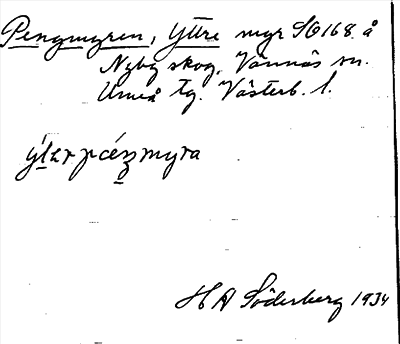 Pengmyren, Yttre myr SO 168. å
Nyby skog, Vännäs sn.
Umeå tg. Västerb. l.
H A Söderberg 1934